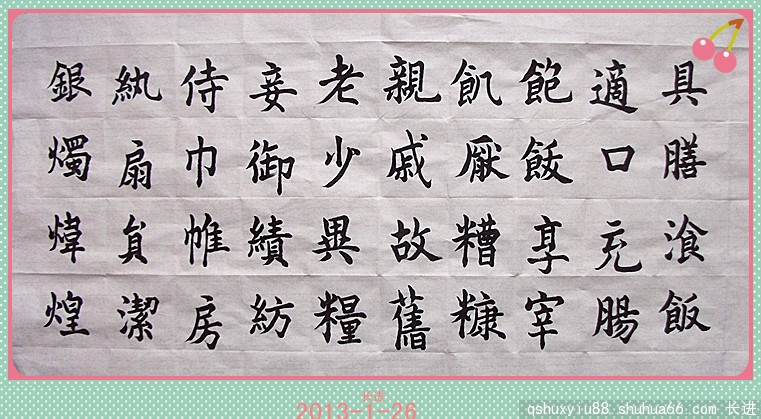 具膳湌飯
適口充腸
飽飫享宰
飢厭糟糠
親戚故舊
老少異糧
妾御績紡
侍巾帷房
紈扇貟潔
銀燭煒煌
长进
2013-1-26
qshuxyiu88.shuhua66.com 长进